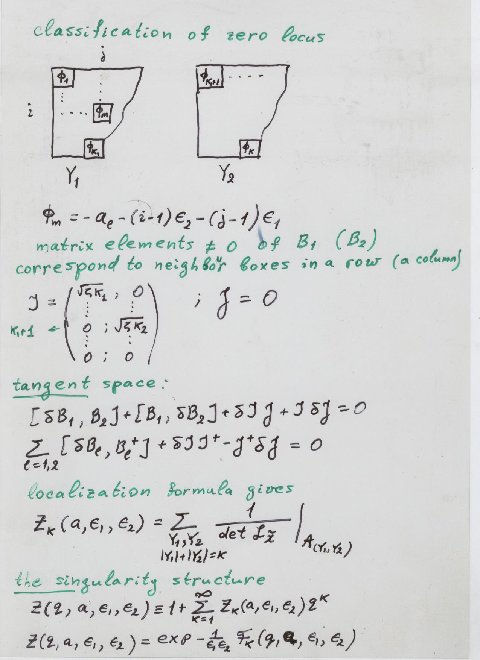 classification of zero locus
j
i
ϕ₁
ϕₘ
ϕ_{K₁}
ϕ_{K₁+1}
ϕ_K
Y₁
Y₂
ϕₘ = -a_ℓ -(i-1)ϵ₂ -(j-1)ϵ₁
matrix elements ≠ 0 of B₁ (B₂)
correspond to neighbor boxes in a row (a column)
I = ( √ζK₁ ; 0
⋮ ⋮
K₁+1 ← 0 ; √ζK₂
⋮ ⋮
0 ; 0 ) ; J = 0
tangent space:
[δB₁, B₂] + [B₁, δB₂] + δI J + I δJ = 0
∑_{ℓ=1,2} [δB_ℓ, B_ℓ⁺] + δI I⁺ - J⁺ δJ = 0
localization formula gives
Z_K(a, ϵ₁, ϵ₂) = ∑_{Y₁,Y₂ |Y₁|+|Y₂|=K} 1 / det ℒ_{z̃} |_{A(Y₁,Y₂)}
the singularity structure
Z(q, a, ϵ₁, ϵ₂) ≡ 1 + ∑_{K=1}^∞ Z_K(a, ϵ₁, ϵ₂) q^K
Z(q, a, ϵ₁, ϵ₂) = exp - 1/ϵ₁ϵ₂ ℱ_K(q, a, ϵ₁, ϵ₂)